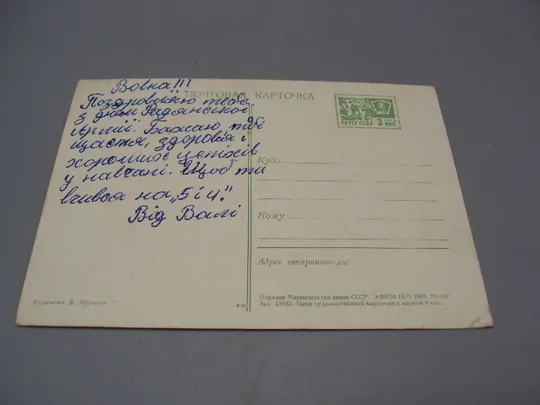 Вовка!!!
ПОЧТОВАЯ КАРТОЧКА
Поздоровляю тебе
з днем Радянської
Армії. Бажаю тобі
щастя, здоровя і
хороших успіхів
у навчані. Щоб ти
вчився на „5 і 4."
Від Валі.
ПОЧТА СССР 3 КОП
Куда
Кому
Адрес отправителя:
Художник В.
Издание Министерства связи СССР. 1969
Цена художественной карточки с маркой 4 коп.